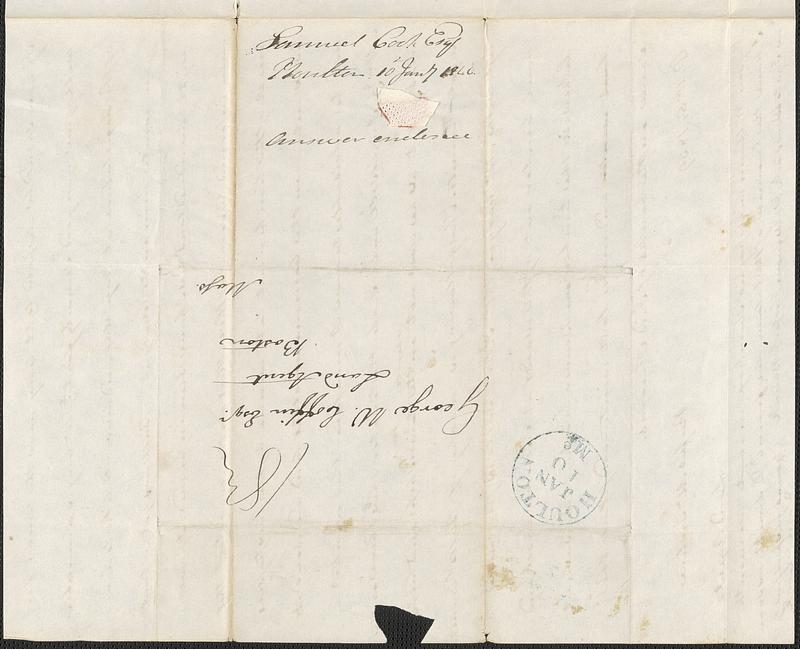 Samuel Cook Esq
Houlton 10 Jany 1844.
Answer enclosed
George W. Coffin Esqr.
Land Agent
Boston
Mass.
18¾
HOULTON
JAN
10
Me